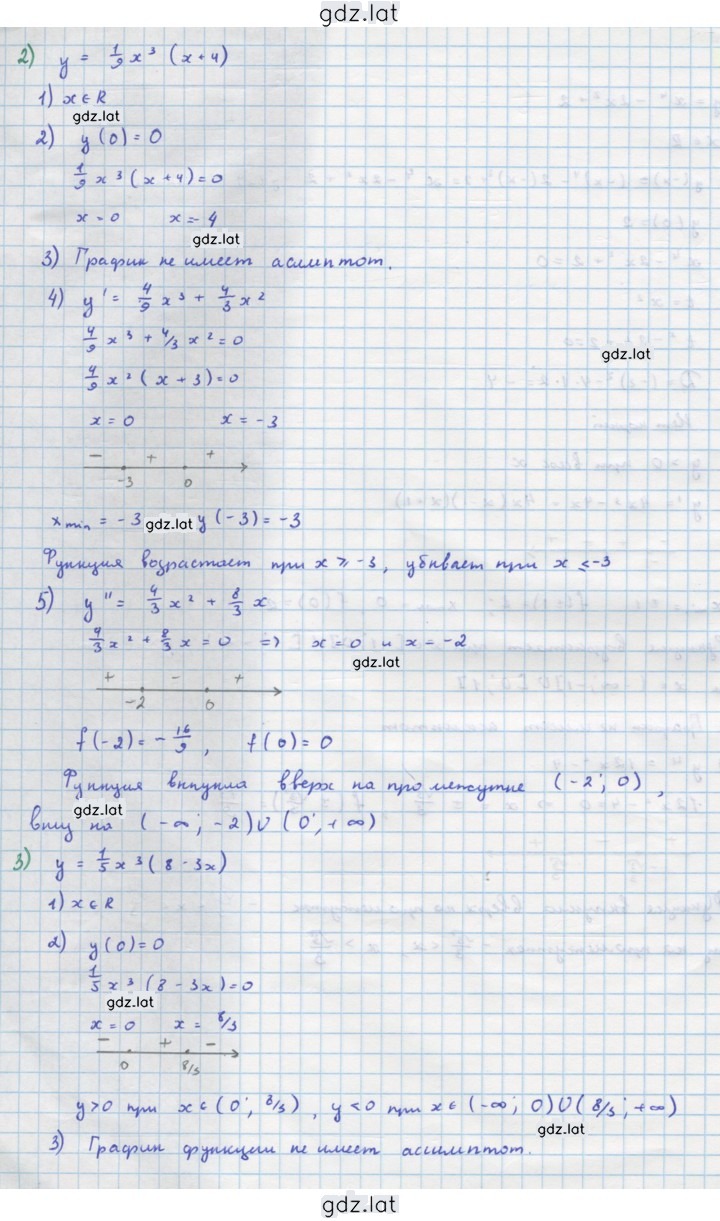 gdz.lat
2) y = 1/9 x³ (x+4)
1) x∈R
gdz.lat
2) y(0) = 0
1/9 x³ (x+4) = 0
x = 0 x = -4
gdz.lat
3) График не имеет асимптот.
4) y' = 4/9 x³ + 4/3 x²
4/9 x³ + 4/3 x² = 0
gdz.lat
4/9 x² (x+3) = 0
x = 0 x = -3
- + +
-3 0
x min = -3 gdz.lat y(-3) = -3
Функция возрастает при x ⩾ -3, убывает при x ⩽ -3
5) y'' = 4/3 x² + 8/3 x
4/3 x² + 8/3 x = 0 => x = 0 и x = -2
gdz.lat
+ - +
-2 0
f(-2) = -16/9, f(0) = 0
Функция выпукла вверх на промежутке (-2; 0),
gdz.lat
вниз на (-∞; -2)∪(0; +∞)
3) y = 1/5 x³ (8 - 3x)
1) x∈R
2) y(0) = 0
1/5 x³ (8 - 3x) = 0
gdz.lat
x = 0 x = 8/3
- + -
0 8/3
y>0 при x∈(0; 8/3), y<0 при x∈(-∞; 0)∪(8/3; +∞)
gdz.lat
3) График функции не имеет ассимптот.
gdz.lat